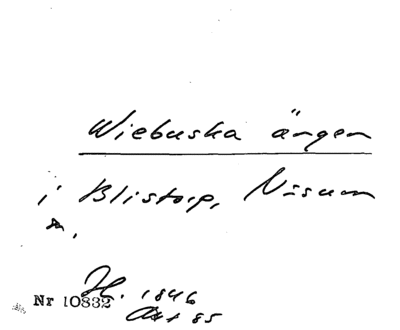 Wiebuska ängen
i Blistorp, Näsum
sn.
H. 1846
Nr 10832
Akt 85